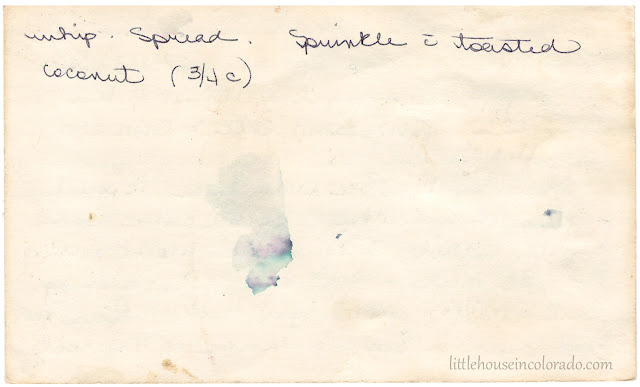 whip. Spread. Sprinkle c̄ toasted
coconut (3/4 c)
littlehouseincolorado.com